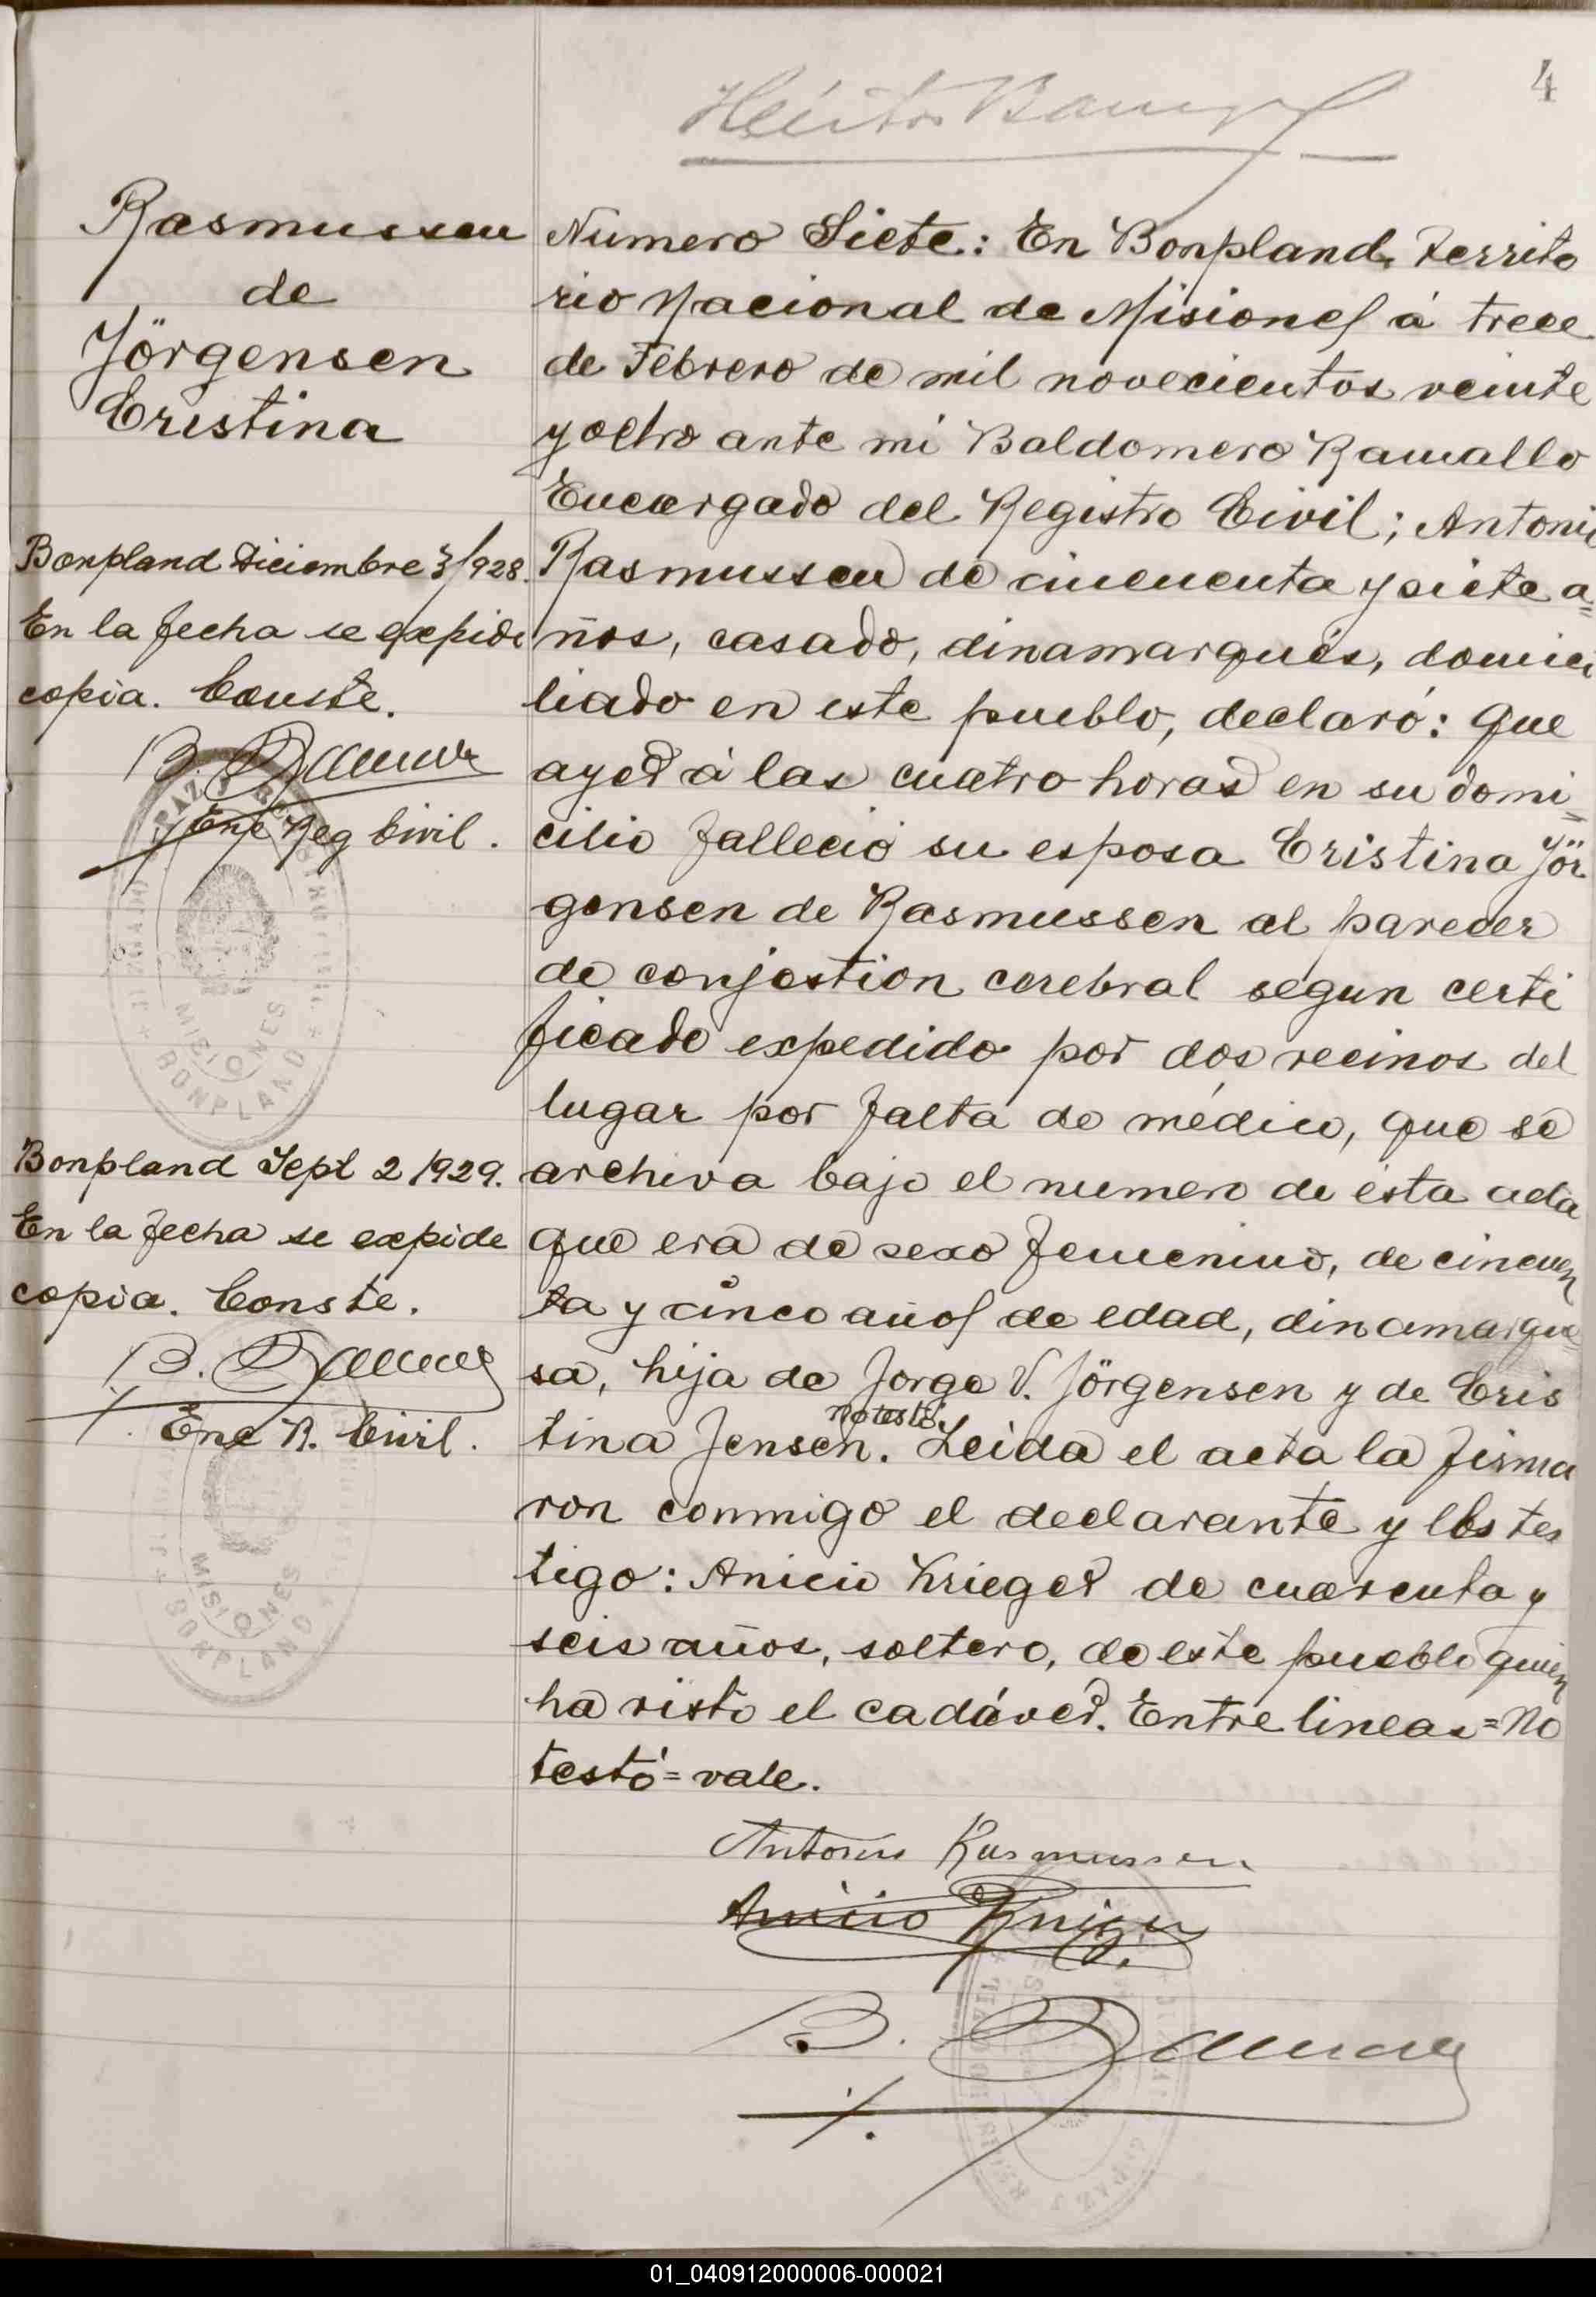 4
Héctor
Rasmussen
de
Jörgensen
Cristina
Bonpland Diciembre 3/928.
En la fecha se expide
copia. Conste.
B. Ramallo
Enc Reg Civil.
JUZGADO DE PAZ Y REGISTRO CIVIL
MISIONES
BONPLAND
Bonpland Sept 2/929.
En la fecha se expide
copia. Conste.
B. Ramallo
Enc R. Civil.
MISIONES
BONPLAND
Numero Siete: En Bonpland, Territo
rio Nacional de Misiones á trece
de Febrero de mil novecientos veinte
y ocho ante mi Baldomero Ramallo
Encargado del Registro Civil; Antonio
Rasmussen de cincuenta y siete a=
ños, casado, dinamarqués, domici
liado en este pueblo, declaró: Que
ayer á las cuatro horas en su domi=
cilio falleció su esposa Cristina Jör
gensen de Rasmussen al parecer
de conjestion cerebral segun certi
ficado expedido por dos vecinos del
lugar por falta de médico, que se
archiva bajo el numero de ésta acta
que era de sexo femenino, de cincuen
ta y cinco años de edad, dinamarque=
sa, hija de Jorge V. Jörgensen y de Cris
no testó.
tina Jensen. Leida el acta la firma
ron conmigo el declarante y los tes
tigo: Anicio Krieger de cuarenta y
seis años, soltero, de este pueblo quien
ha visto el cadáver. Entre lineas=No
testó=vale.
Antonio Rasmussen
Anicio Krieger
B. Ramallo
01_040912000006-000021